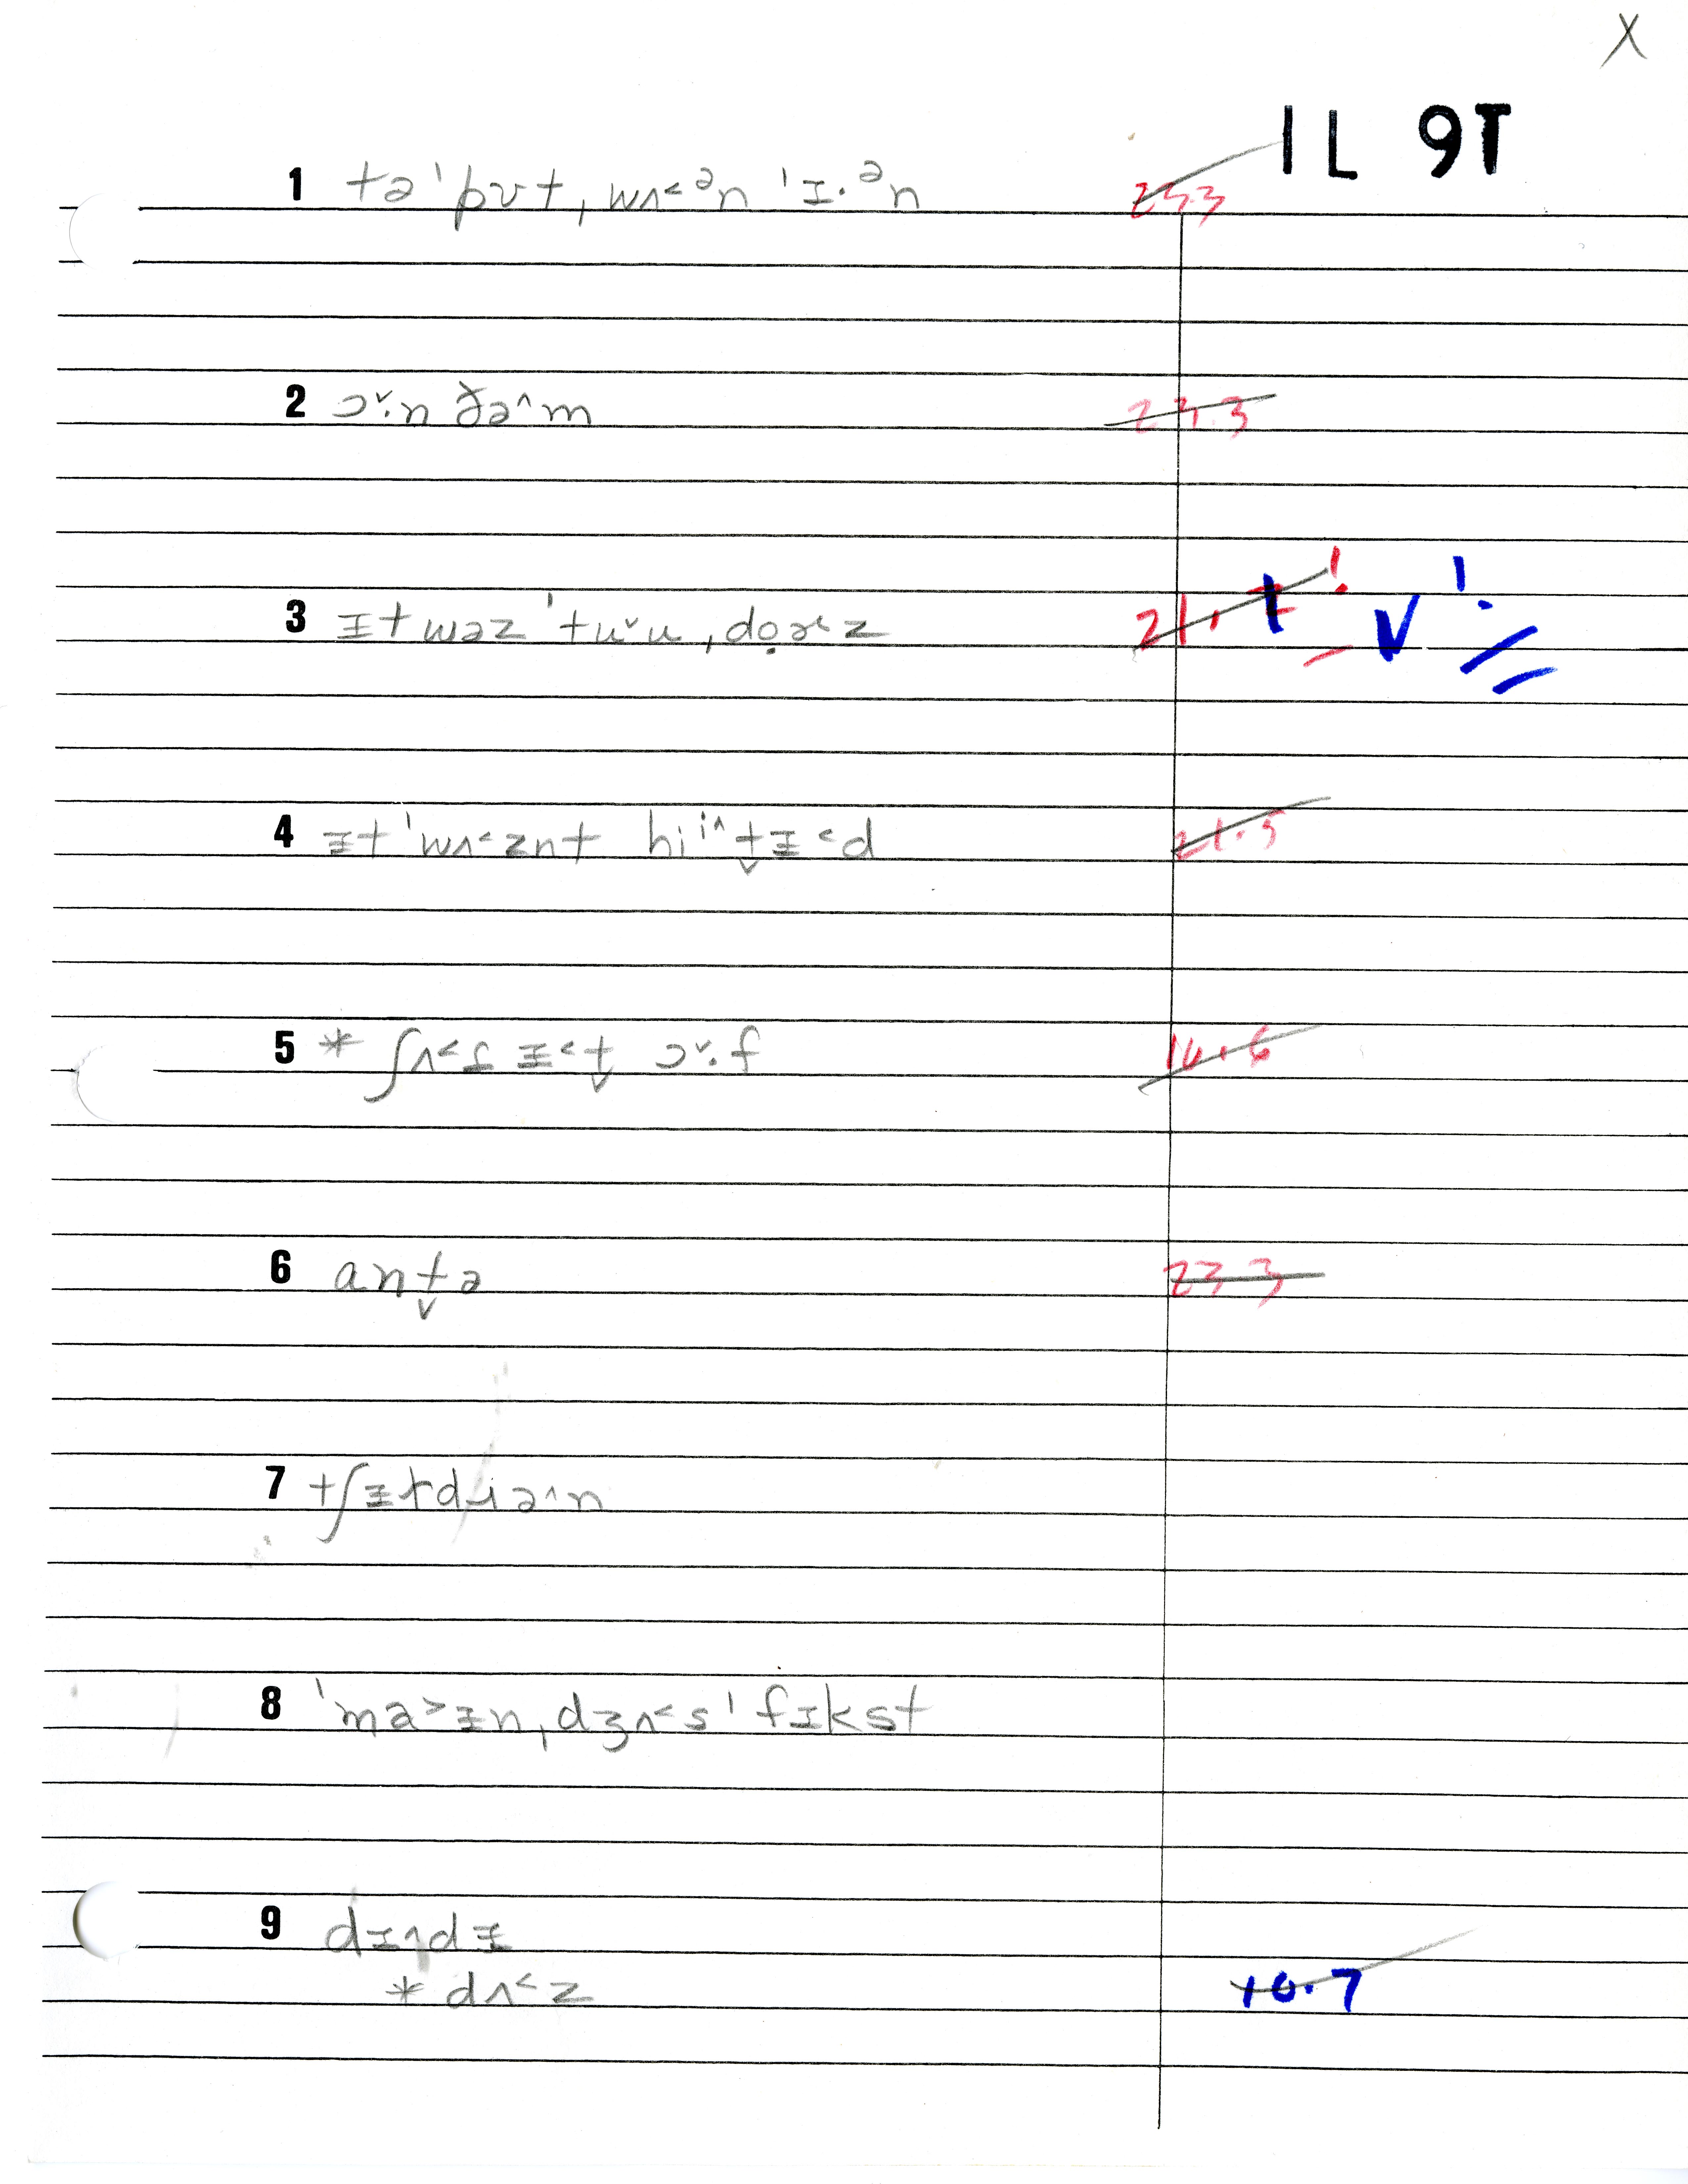 X
IL 9T
1 tə ˈpʊt, wʌ˂ᵊn ˈɪ·ᵊn
2 ɔ˅·n ðə^m
23.3
3 ɪt wəz ˈtu˅u, dọɚz
21. t! V !
4 ɪt ˈwʌ˂znt hiⁱ^ t̬ɪ˂d
21.5
5 * ʃʌ˂t̬ ɔ˅·f
6 ant̬ə
23 3
7 tʃɪɫdɹə^n
8 ˈma˃ɪn, dʒʌ˂s ˈfɪkst
9 dɪ^dɪ
* dʌ˂z
10.7